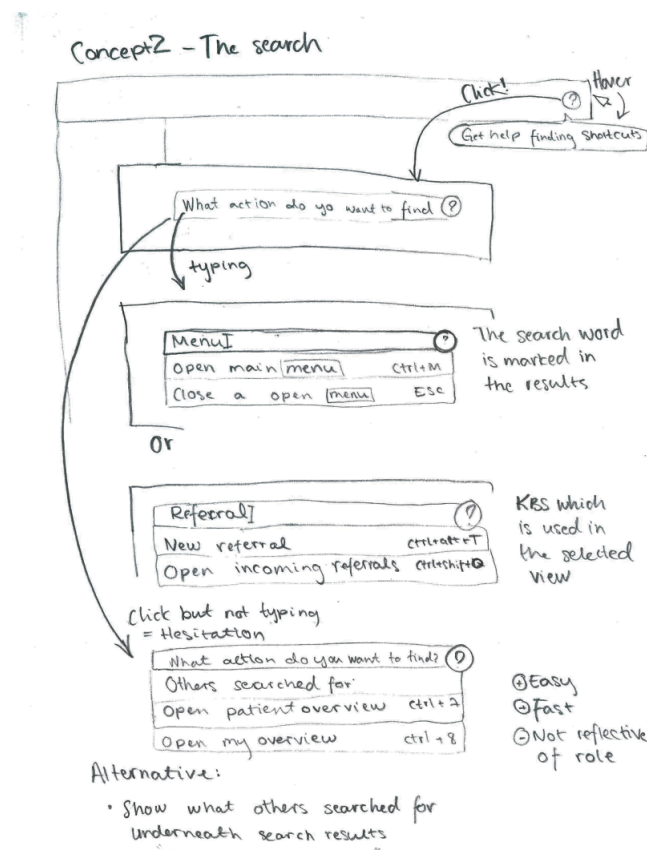 Concept2 - The search
Click!
Hover
?
Get help finding shortcuts
What action do yo want to find ?
typing
Menu
?
Open main menu Ctrl+M
Close a open menu Esc
The search word
is marked in
the results
Or
Referral
?
New referral ctrl+alt+T
Open incoming referrals ctrl+shift+Q
KBS which
is used in
the selected
view
Click but not typing
= Hesitation
What action do you want to find? ?
Others searched for:
Open patient overview ctrl+7
Open my overview ctrl+8
+ Easy
+ Fast
- Not reflective
of role
Alternative:
• Show what others searched for
underneath search results